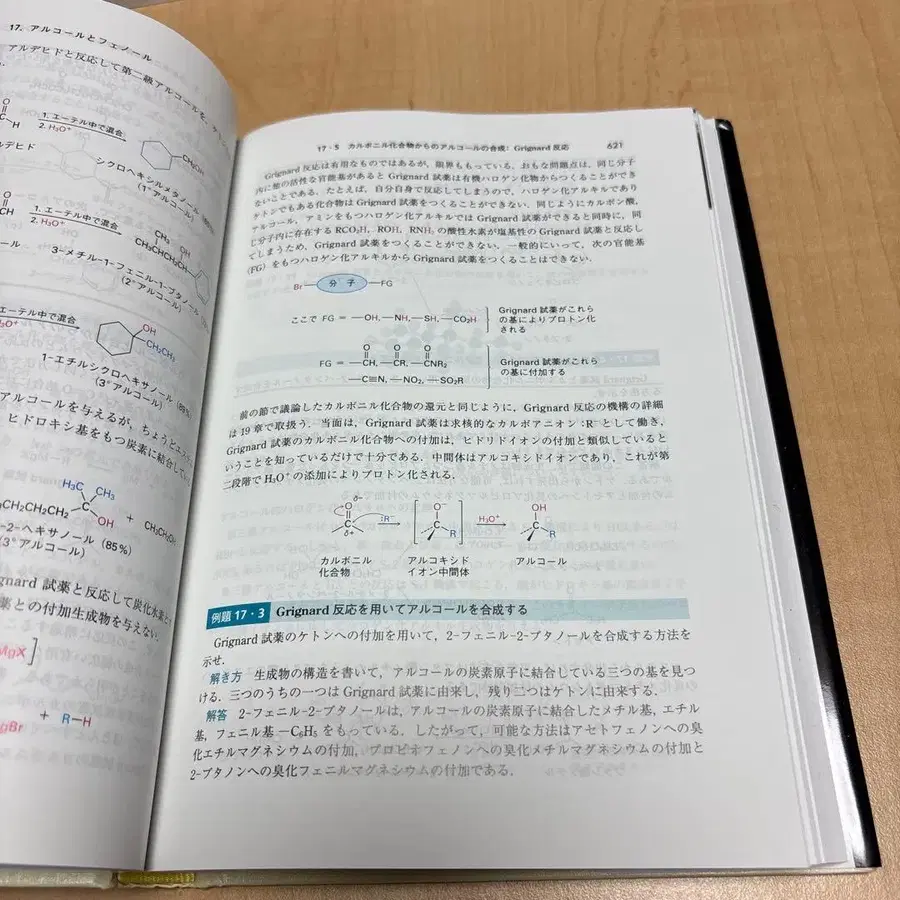 17. アルコールとフェノール
アルデヒドと反応して第一級アルコールを,
O
C
H
1. エーテル中で混合
2. H₃O⁺
CH₂OH
シクロヘキシルメタノール
(1°アルコール)
O
CH
1. エーテル中で混合
2. H₃O⁺
CH₃ OH
3-メチル-1-フェニル-1-ブタノール
(2°アルコール)
エーテル中で混合
OH
CH₂CH₃
1-エチルシクロヘキサノール (89%)
(3°アルコール)
アルコールを与えるが, ちょうどエス
ヒドロキシ基をもつ炭素に結合してい
H₃C CH₃
C
CH₂CH₂CH₂CH₂ OH + CH₃CH₂OH
-2-ヘキサノール (85%)
(3°アルコール)
gnard 試薬と反応して炭化水素と
薬との付加生成物を与えない.
MgX
gBr + R—H
17・5 カルボニル化合物からのアルコールの合成: Grignard 反応 621
Grignard 反応は有用なものではあるが, 限界ももっている. おもな問題点は, 同じ分子
内に他の活性な官能基があると Grignard 試薬は有機ハロゲン化物からつくることができ
ないことである. たとえば, 自分自身で反応してしまうので, ハロゲン化アルキルであり
ケトンでもある化合物は Grignard 試薬をつくることができない. 同じようにカルボン酸,
アルコール, アミンをもつハロゲン化アルキルでは Grignard 試薬ができると同時に, 同
じ分子内に存在する RCO₂H, ROH, RNH₂ の酸性水素が塩基性の Grignard 試薬と反応し
てしまうため, Grignard 試薬をつくることができない. 一般的にいって, 次の官能基
(FG) をもつハロゲン化アルキルから Grignard 試薬をつくることはできない.
Br—分 子—FG
ここで FG = —OH, —NH, —SH, —CO₂H
Grignard 試薬がこれら
の基によりプロトン化
される
O O O
FG = —CH, —CR, —CNR₂
—C≡N, —NO₂, —SO₂R
Grignard 試薬がこれら
の基に付加する
前の節で議論したカルボニル化合物の還元と同じように, Grignard 反応の機構の詳細
は 19 章で取扱う. 当面は, Grignard 試薬は求核的なカルボアニオン :R⁻ として働き,
Grignard 試薬のカルボニル化合物への付加は, ヒドリドイオンの付加と類似していると
いうことを知っているだけで十分である. 中間体はアルコキシドイオンであり, これが第
二段階で H₃O⁺ の添加によりプロトン化される.
δ−
O
C
δ+
:R⁻
O⁻
C
R
H₃O⁺
OH
C
R
カルボニル
化合物
アルコキシド
イオン中間体
アルコール
例題 17・3 Grignard 反応を用いてアルコールを合成する
Grignard 試薬のケトンへの付加を用いて, 2-フェニル-2-ブタノールを合成する方法を
示せ.
解き方 生成物の構造を書いて, アルコールの炭素原子に結合している三つの基を見つ
ける. 三つのうちの一つは Grignard 試薬に由来し, 残り二つはケトンに由来する.
解答 2-フェニル-2-ブタノールは, アルコールの炭素原子に結合したメチル基, エチル
基, フェニル基 —C₆H₅ をもっている. したがって, 可能な方法はアセトフェノンへの臭
化エチルマグネシウムの付加, プロピオフェノンへの臭化メチルマグネシウムの付加と
2-ブタノンへの臭化フェニルマグネシウムの付加である.